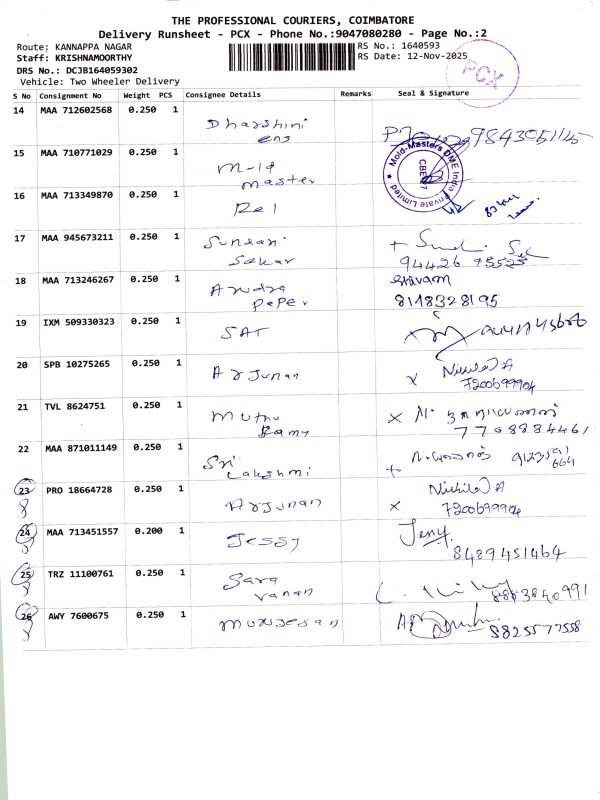 THE PROFESSIONAL COURIERS, COIMBATORE
Delivery Runsheet - PCX - Phone No.:9047080280 - Page No.:2
Route; KANNAPPA NAGAR RS No.: 1640593
Staff: KRISHNAMOORTHY RS Date: 12-Nov-2025
DRS No.: DCJB164059302
Vehicle: Two Wheeler Delivery
PCX
S No Consignment No Weight PCS Consignee Details Remarks Seal & Signature
14 MAA 712602568 0.250 1 Dharshini
eng 9843051145
15 MAA 710771029 0.250 1 M-19
master
Mold-Masters DME India Private Limited
16 MAA 713349870 0.250 1 Rel
17 MAA 945673211 0.250 1 Sundari
Sekar
94426 75525
18 MAA 713246267 0.250 1 Andra
paper
Shivam
8148328195
19 IXM 509330323 0.250 1 SAT
20 SPB 10275265 0.250 1 Arjunan Nikila A
7200699904
21 TVL 8624751 0.250 1 Muthu
Ramy
7708884461
22 MAA 871011149 0.250 1 Sri
Lakshmi
9123591
664
23 PRO 18664728 0.250 1 Arjunan Nikila A
7200699904
24 MAA 713451557 0.200 1 Jessy Jeny
8489451464
25 TRZ 11100761 0.250 1 Sara
vanan
8883840991
26 AWY 7600675 0.250 1 Murugesan 8825577558